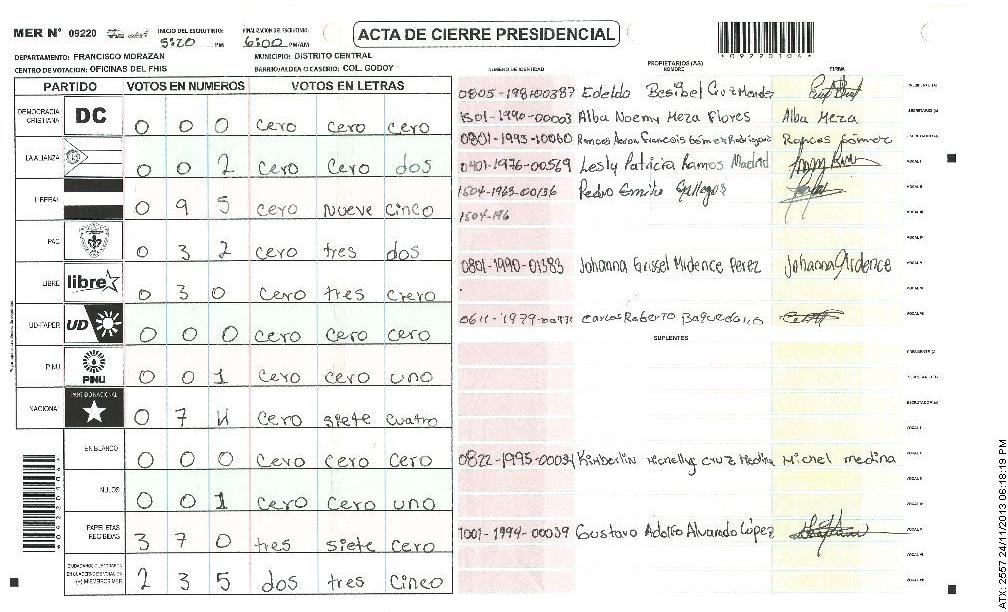 MER N° 09220 INICIO DEL ESCRUTINIO: 5:20 PM FINALIZACION DEL ESCRUTINIO: 6:00 PM/AM
ACTA DE CIERRE PRESIDENCIAL
*09220104*
DEPARTAMENTO: FRANCISCO MORAZAN MUNICIPIO: DISTRITO CENTRAL
CENTRO DE VOTACION: OFICINAS DEL FHIS BARRIO/ALDEA O CASERIO: COL. GODOY
PARTIDO VOTOS EN NUMEROS VOTOS EN LETRAS
DEMOCRACIA CRISTIANA DC 0 0 0 cero cero cero
LA ALIANZA 0 0 2 cero cero dos
LIBERAL 0 9 5 cero nueve cinco
PAC 0 3 2 cero tres dos
LIBRE libre 0 3 0 cero tres cero
UD-FAPER UD 0 0 0 cero cero cero
PINU PINU 0 0 1 cero cero uno
NACIONAL PARTIDO NACIONAL 0 7 4 cero siete cuatro
EN BLANCO 0 0 0 cero cero cero
NULOS 0 0 1 cero cero uno
PAPELETAS RECIBIDAS 3 7 0 tres siete cero
2 3 5 dos tres cinco
NUMERO DE IDENTIDAD PROPIETARIOS (AS) NOMBRE FIRMA
0805-1981-00387 Edelda Besibel Cruz Mendez PRESIDENTE (A)
1501-1990-00003 Alba Noemy Meza Flores Alba Meza SECRETARIO (A)
0801-1995-10060 Rances Aaron Francois Gómez Rodríguez Rances Gómez ESCRUTADOR (A)
0401-1976-00569 Lesly Patricia Ramos Madrid VOCAL I
1504-1963-00136 Pedro Emilio Gallegos VOCAL II
1504-196 VOCAL III
VOCAL IV
0801-1990-01383 Johanna Grissel Midence Perez Johanna Midence VOCAL V
VOCAL VI
Carlos Roberto VOCAL VII
SUPLENTES
PRESIDENTE (A)
SECRETARIO (A)
ESCRUTADOR (A)
VOCAL I
Kimberlin Cruz Medina Michel medina
VOCAL III
VOCAL IV
1001-1994-00039 Gustavo Adolfo Alvarado López VOCAL V
VOCAL VI
VOCAL VII
ATX: 2557 24/11/2013 06:18:19 PM